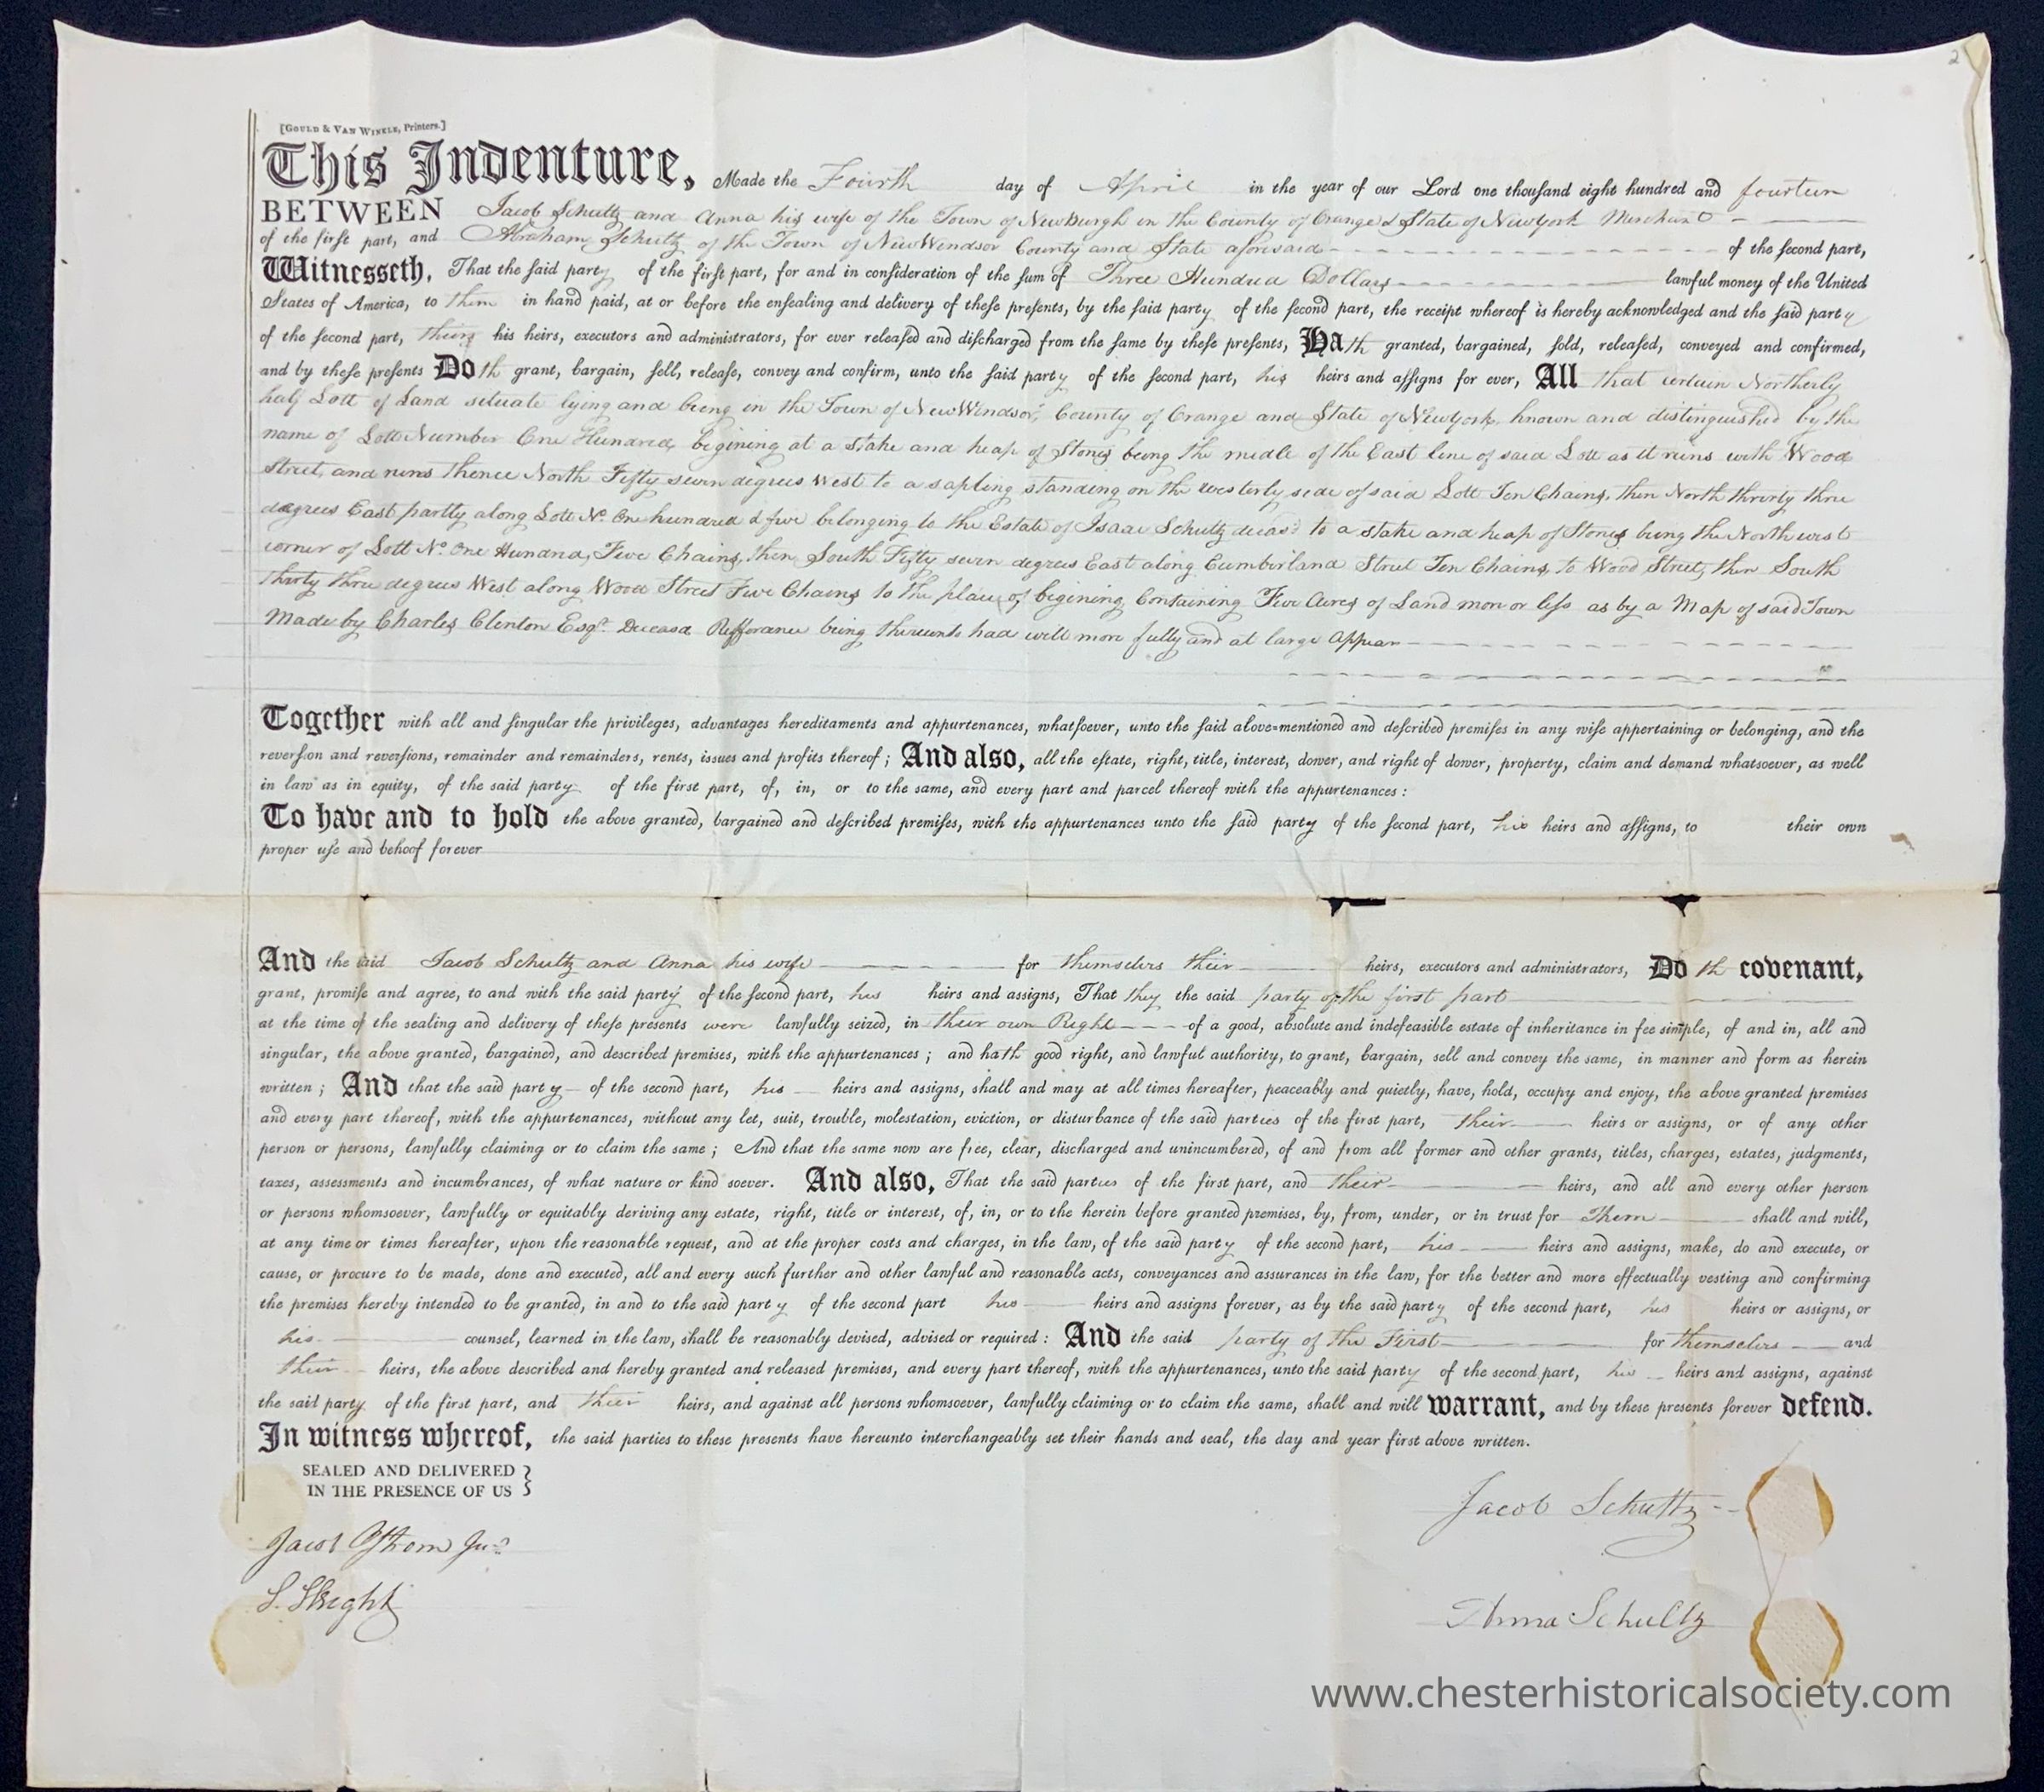 2
[Gould & Van Winkle, Printers.]
This Indenture, Made the Fourth day of April in the year of our Lord one thousand eight hundred and fourteen
BETWEEN Jacob Schultz and Anna his wife of the Town of Newburgh in the County of Orange & State of New York Merchant
of the first part, and Abraham Schultz of the Town of New Windsor County and State aforesaid of the second part,
Witnesseth, That the said party of the first part, for and in consideration of the sum of Three Hundred Dollars lawful money of the United
States of America, to them in hand paid, at or before the ensealing and delivery of these presents, by the said party of the second part, the receipt whereof is hereby acknowledged and the said party
of the second part, theirs his heirs, executors and administrators, for ever released and discharged from the same by these presents, Hath granted, bargained, sold, released, conveyed and confirmed,
and by these presents Doth grant, bargain, sell, release, convey and confirm, unto the said party of the second part, his heirs and assigns for ever, All that certain Northerly
half Lott of Land situate lying and being in the Town of New Windsor, County of Orange and State of New York, known and distinguished by the
name of Lott Number One Hundred, begining at a stake and heap of Stones being the midle of the East line of said Lott as it runs with Wood
Street, and runs thence North Fifty seven degrees West to a sapling standing on the westerly side of said Lott Ten Chains, then North thirty three
degrees East partly along Lott No. One hundred & five belonging to the Estate of Isaac Schultz deceasd to a stake and heap of Stones being the North west
corner of Lott No. One Hundred, Five Chains, then South Fifty seven degrees East along Cumberland Street Ten Chains, to Wood Street, then South
thirty three degrees West along Wood Street Five Chains to the place of begining, Containing Five Acres of Land more or less as by a Map of said Town
Made by Charles Clinton Esqr. Deceasd Refferance being thereunto had will more fully and at large appear
Together with all and singular the privileges, advantages hereditaments and appurtenances, whatsoever, unto the said above=mentioned and described premises in any wise appertaining or belonging, and the
reversion and reversions, remainder and remainders, rents, issues and profits thereof; And also, all the estate, right, title, interest, dower, and right of dower, property, claim and demand whatsoever, as well
in law as in equity, of the said party of the first part, of, in, or to the same, and every part and parcel thereof with the appurtenances:
To have and to hold the above granted, bargained and described premises, with the appurtenances unto the said party of the second part, his heirs and assigns, to their own
proper use and behoof forever
And the said Jacob Schultz and Anna his wife for themselvs their heirs, executors and administrators, Doth covenant,
grant, promise and agree, to and with the said party of the second part, his heirs and assigns, That they the said party of the first part
at the time of the sealing and delivery of these presents were lawfully seized, in their own Right of a good, absolute and indefeasible estate of inheritance in fee simple, of and in, all and
singular, the above granted, bargained, and described premises, with the appurtenances; and hath good right, and lawful authority, to grant, bargain, sell and convey the same, in manner and form as herein
written; And that the said party of the second part, his heirs and assigns, shall and may at all times hereafter, peaceably and quietly, have, hold, occupy and enjoy, the above granted premises
and every part thereof, with the appurtenances, without any let, suit, trouble, molestation, eviction, or disturbance of the said parties of the first part, their heirs or assigns, or of any other
person or persons, lawfully claiming or to claim the same; And that the same now are free, clear, discharged and unincumbered, of and from all former and other grants, titles, charges, estates, judgments,
taxes, assessments and incumbrances, of what nature or kind soever. And also, That the said parties of the first part, and their heirs, and all and every other person
or persons whomsoever, lawfully or equitably deriving any estate, right, title or interest, of, in, or to the herein before granted premises, by, from, under, or in trust for Them shall and will,
at any time or times hereafter, upon the reasonable request, and at the proper costs and charges, in the law, of the said party of the second part, his heirs and assigns, make, do and execute, or
cause, or procure to be made, done and executed, all and every such further and other lawful and reasonable acts, conveyances and assurances in the law, for the better and more effectually vesting and confirming
the premises hereby intended to be granted, in and to the said party of the second part his heirs and assigns forever, as by the said party of the second part, his heirs or assigns, or
his counsel, learned in the law, shall be reasonably devised, advised or required: And the said party of the First for themselvs and
their heirs, the above described and hereby granted and released premises, and every part thereof, with the appurtenances, unto the said party of the second part, his heirs and assigns, against
the said party of the first part, and their heirs, and against all persons whomsoever, lawfully claiming or to claim the same, shall and will warrant, and by these presents forever defend.
In witness whereof, the said parties to these presents have hereunto interchangeably set their hands and seal, the day and year first above written.
SEALED AND DELIVERED
IN THE PRESENCE OF US
Jacob Schultz
Jacob Ostrom Jur.
S. Slight
Anna Schultz
www.chesterhistoricalsociety.com